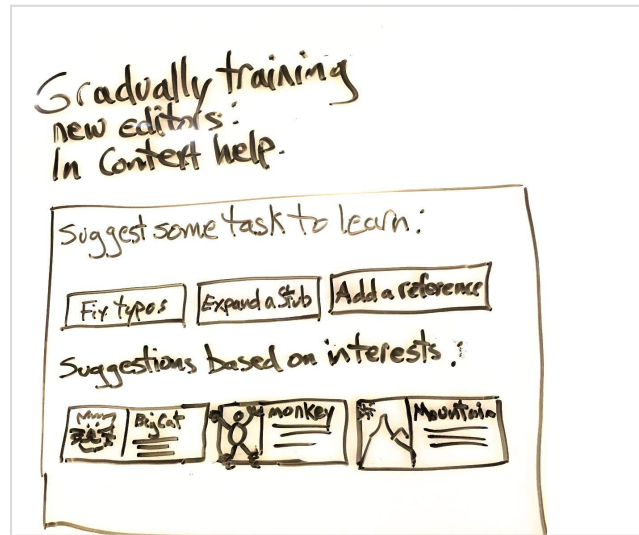 Gradually training
new editors:
In Context help.
Suggest some task to learn:
Fix typos
Expand a Stub
Add a reference
Suggestions based on interests:
Big Cat
monkey
Mountain